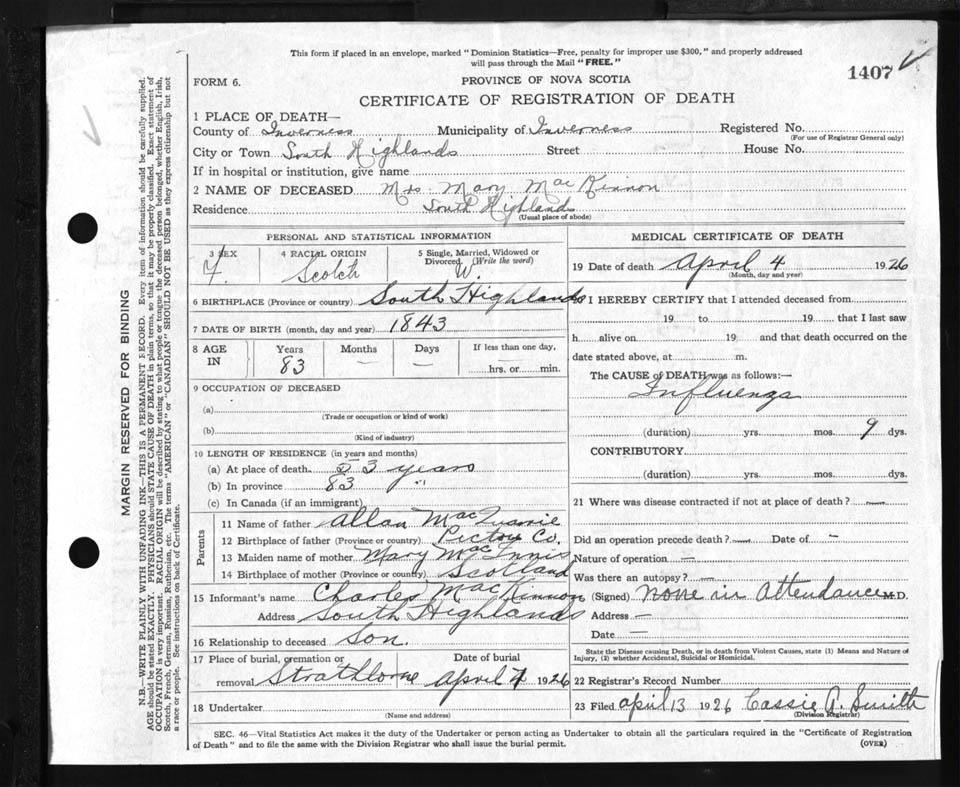 This form if placed in an envelope, marked "Dominion Statistics—Free, penalty for improper use $300," and properly addressed
will pass through the Mail "FREE."
1407
FORM 6.
PROVINCE OF NOVA SCOTIA
CERTIFICATE OF REGISTRATION OF DEATH
1 PLACE OF DEATH—
County of Inverness Municipality of Inverness Registered No.
(For use of Registrar General only)
City or Town South Highlands Street House No.
If in hospital or institution, give name
2 NAME OF DECEASED Mrs. Mary MacKinnon
Residence South Highlands
(Usual place of abode)
PERSONAL AND STATISTICAL INFORMATION
3 SEX 4 RACIAL ORIGIN 5 Single, Married, Widowed or
Divorced (Write the word)
F. Scotch W.
6 BIRTHPLACE (Province or country) South Highlands
7 DATE OF BIRTH (month, day and year) 1843
8 AGE IN Years Months Days If less than one day,
83 — — hrs. or min.
9 OCCUPATION OF DECEASED
(a)
(Trade or occupation or kind of work)
(b)
(Kind of industry)
10 LENGTH OF RESIDENCE (in years and months)
(a) At place of death 53 years
(b) In province 83 "
(c) In Canada (if an immigrant)
Parents
11 Name of father Allan MacQuarrie
12 Birthplace of father (Province or country) Pictou Co.
13 Maiden name of mother Mary MacInnis
14 Birthplace of mother (Province or country) Scotland
15 Informant's name Charles MacKinnon
Address South Highlands
16 Relationship to deceased Son.
17 Place of burial, cremation or Date of burial
removal Strathlorne April 7 1926
18 Undertaker
(Name and address)
MEDICAL CERTIFICATE OF DEATH
19 Date of death April 4 1926
(Month, day and year)
20 I HEREBY CERTIFY that I attended deceased from
19 to 19 that I last saw
h alive on 19 and that death occurred on the
date stated above, at m.
The CAUSE OF DEATH was as follows:—
Influenza
(duration) yrs. mos. 9 dys.
CONTRIBUTORY
(duration) yrs. mos. dys.
21 Where was disease contracted if not at place of death? —
Did an operation precede death? — Date of —
Nature of operation —
Was there an autopsy? —
(Signed) None in attendance M.D.
Address —
Date —
State the Disease causing Death, or in death from Violent Causes, state (1) Means and Nature of
Injury, (2) whether Accidental, Suicidal or Homicidal.
22 Registrar's Record Number
23 Filed April 13 1926 Cassie A. Smith
(Division Registrar)
SEC. 46—Vital Statistics Act makes it the duty of the Undertaker or person acting as Undertaker to obtain all the particulars required in the "Certificate of Registration
of Death" and to file the same with the Division Registrar who shall issue the burial permit.
(OVER)
MARGIN RESERVED FOR BINDING
N.B.—WRITE PLAINLY WITH UNFADING INK—THIS IS A PERMANENT RECORD. Every item of information should be carefully supplied.
AGE should be stated EXACTLY. PHYSICIANS should STATE CAUSE OF DEATH in plain terms, so that it may be properly classified. Exact statement of
OCCUPATION is very important. RACIAL ORIGIN will be described by stating to what people or tongue the deceased person belonged, whether English, Irish,
Scotch, French, German, Russian, Ruthenian, etc. The terms "AMERICAN" or "CANADIAN" SHOULD NOT BE USED as they express citizenship but not
a race or people. See instructions on back of Certificate.